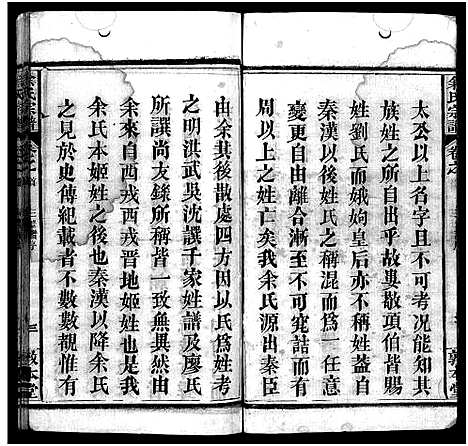 太公以上名字且不可考況能知其
族姓之所自出乎故婁敬項伯皆賜
姓劉氏而娥姁皇后亦不稱姓蓋自
秦漢以後姓氏之稱混而爲一旦有
變更自由離合漸至不可究詰而有
周以上之姓亡矣我余氏源出秦臣
由余其後散處四方因以氏爲姓考
之明洪武吳沈譔千家姓譜及廖氏
所譔尚友錄所稱皆一致無異然由
余來自西戎西戎晋地姬姓也是我
余氏本姬姓之後也秦漢以降余氏
之見於史傳紀載者不大數數觀惟有
余氏宗譜
敦本堂